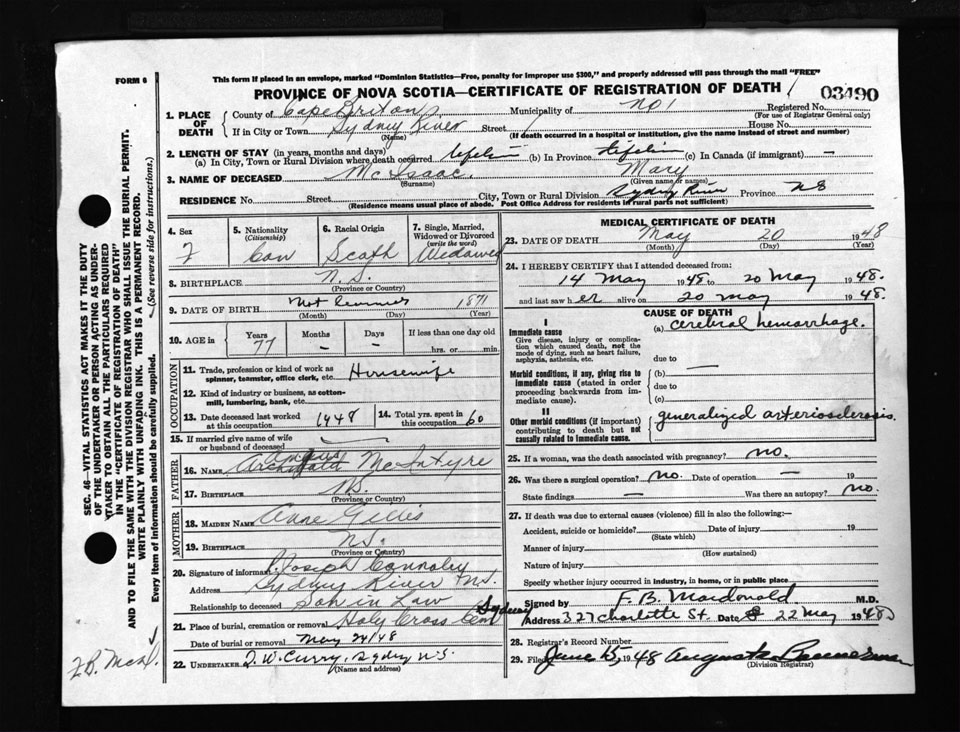 FORM 6
This form if placed in an envelope, marked "Dominion Statistics—Free, penalty for improper use $300," and properly addressed will pass through the mail "FREE"
PROVINCE OF NOVA SCOTIA—CERTIFICATE OF REGISTRATION OF DEATH 03490
1. PLACE OF DEATH County of Cape Breton Municipality of No 1 Registered No. (For use of Registrar General only)
If in City or Town Sydney River Street House No.
(Name) (If death occurred in a hospital or institution, give the name instead of street and number)
2. LENGTH OF STAY (in years, months and days)
(a) In City, Town or Rural Division where death occurred lifetime (b) In Province lifetime (c) In Canada (if immigrant) —
3. NAME OF DECEASED McIsaac Mary
(Surname) (Given name or names)
RESIDENCE No. Street City, Town or Rural Division Sydney River Province NS
(Residence means usual place of abode. Post Office Address for residents in rural parts not sufficient)
4. Sex 5. Nationality (Citizenship) 6. Racial Origin 7. Single, Married, Widowed or Divorced (write the word)
F Can Scoth Widowed
8. BIRTHPLACE N.S.
(Province or Country)
9. DATE OF BIRTH Not 1871
(Month) (Day) (Year)
10. AGE in Years Months Days If less than one day old
77 – – hrs. or min.
OCCUPATION
11. Trade, profession or kind of work as spinner, teamster, office clerk, etc. Housewife
12. Kind of industry or business, as cotton-mill, lumbering, bank, etc.
13. Date deceased last worked at this occupation 1948 14. Total yrs. spent in this occupation 60
15. If married give name of wife or husband of deceased
FATHER
Angus
16. NAME Archibald McIntyre
17. BIRTHPLACE NS.
(Province or Country)
MOTHER
18. MAIDEN NAME Anne Gillis
19. BIRTHPLACE NS.
(Province or Country)
20. Signature of informant Joseph Connoley
Address Sydney River NS.
Relationship to deceased son in Law
21. Place of burial, cremation or removal Holy Cross Cem Sydney
Date of burial or removal May 24/48
22. UNDERTAKER T. W. Curry, Sydney N.S.
(Name and address)
MEDICAL CERTIFICATE OF DEATH
23. DATE OF DEATH May 20 1948
(Month) (Day) (Year)
24. I HEREBY CERTIFY that I attended deceased from:
14 May 1948 to 20 May 1948.
and last saw her alive on 20 May 1948.
CAUSE OF DEATH
I
Immediate cause (a) cerebral hemorrhage.
Give disease, injury or complication which caused death, not the mode of dying, such as heart failure, asphyxia, asthenia, etc.
due to
Morbid conditions, if any, giving rise to immediate cause (stated in order proceeding backwards from immediate cause). (b) —
due to
(c)
II
Other morbid conditions (if important) contributing to death but not causally related to immediate cause. generalized arteriosclerosis.
25. If a woman, was the death associated with pregnancy? no.
26. Was there a surgical operation? No. Date of operation — 19
State findings — Was there an autopsy? No.
27. If death was due to external causes (violence) fill in also the following:—
Accident, suicide or homicide? Date of injury 19
(State which)
Manner of injury
(How sustained)
Nature of injury
Specify whether injury occurred in industry, in home, or in public place
Signed by F. B. Macdonald M.D.
Address 327 Charlotte St. Date 22 May 1948
28. Registrar's Record Number
29. Filed June 15, 1948 Augusta
(Division Registrar)
SEC. 46—VITAL STATISTICS ACT MAKES IT THE DUTY
OF THE UNDERTAKER OR PERSON ACTING AS UNDERTAKER TO OBTAIN ALL THE PARTICULARS REQUIRED
IN THE "CERTIFICATE OF REGISTRATION OF DEATH"
AND TO FILE THE SAME WITH THE DIVISION REGISTRAR WHO SHALL ISSUE THE BURIAL PERMIT.
WRITE PLAINLY WITH UNFADING INK. THIS IS A PERMANENT RECORD.
Every item of information should be carefully supplied. (See reverse side for instructions.)